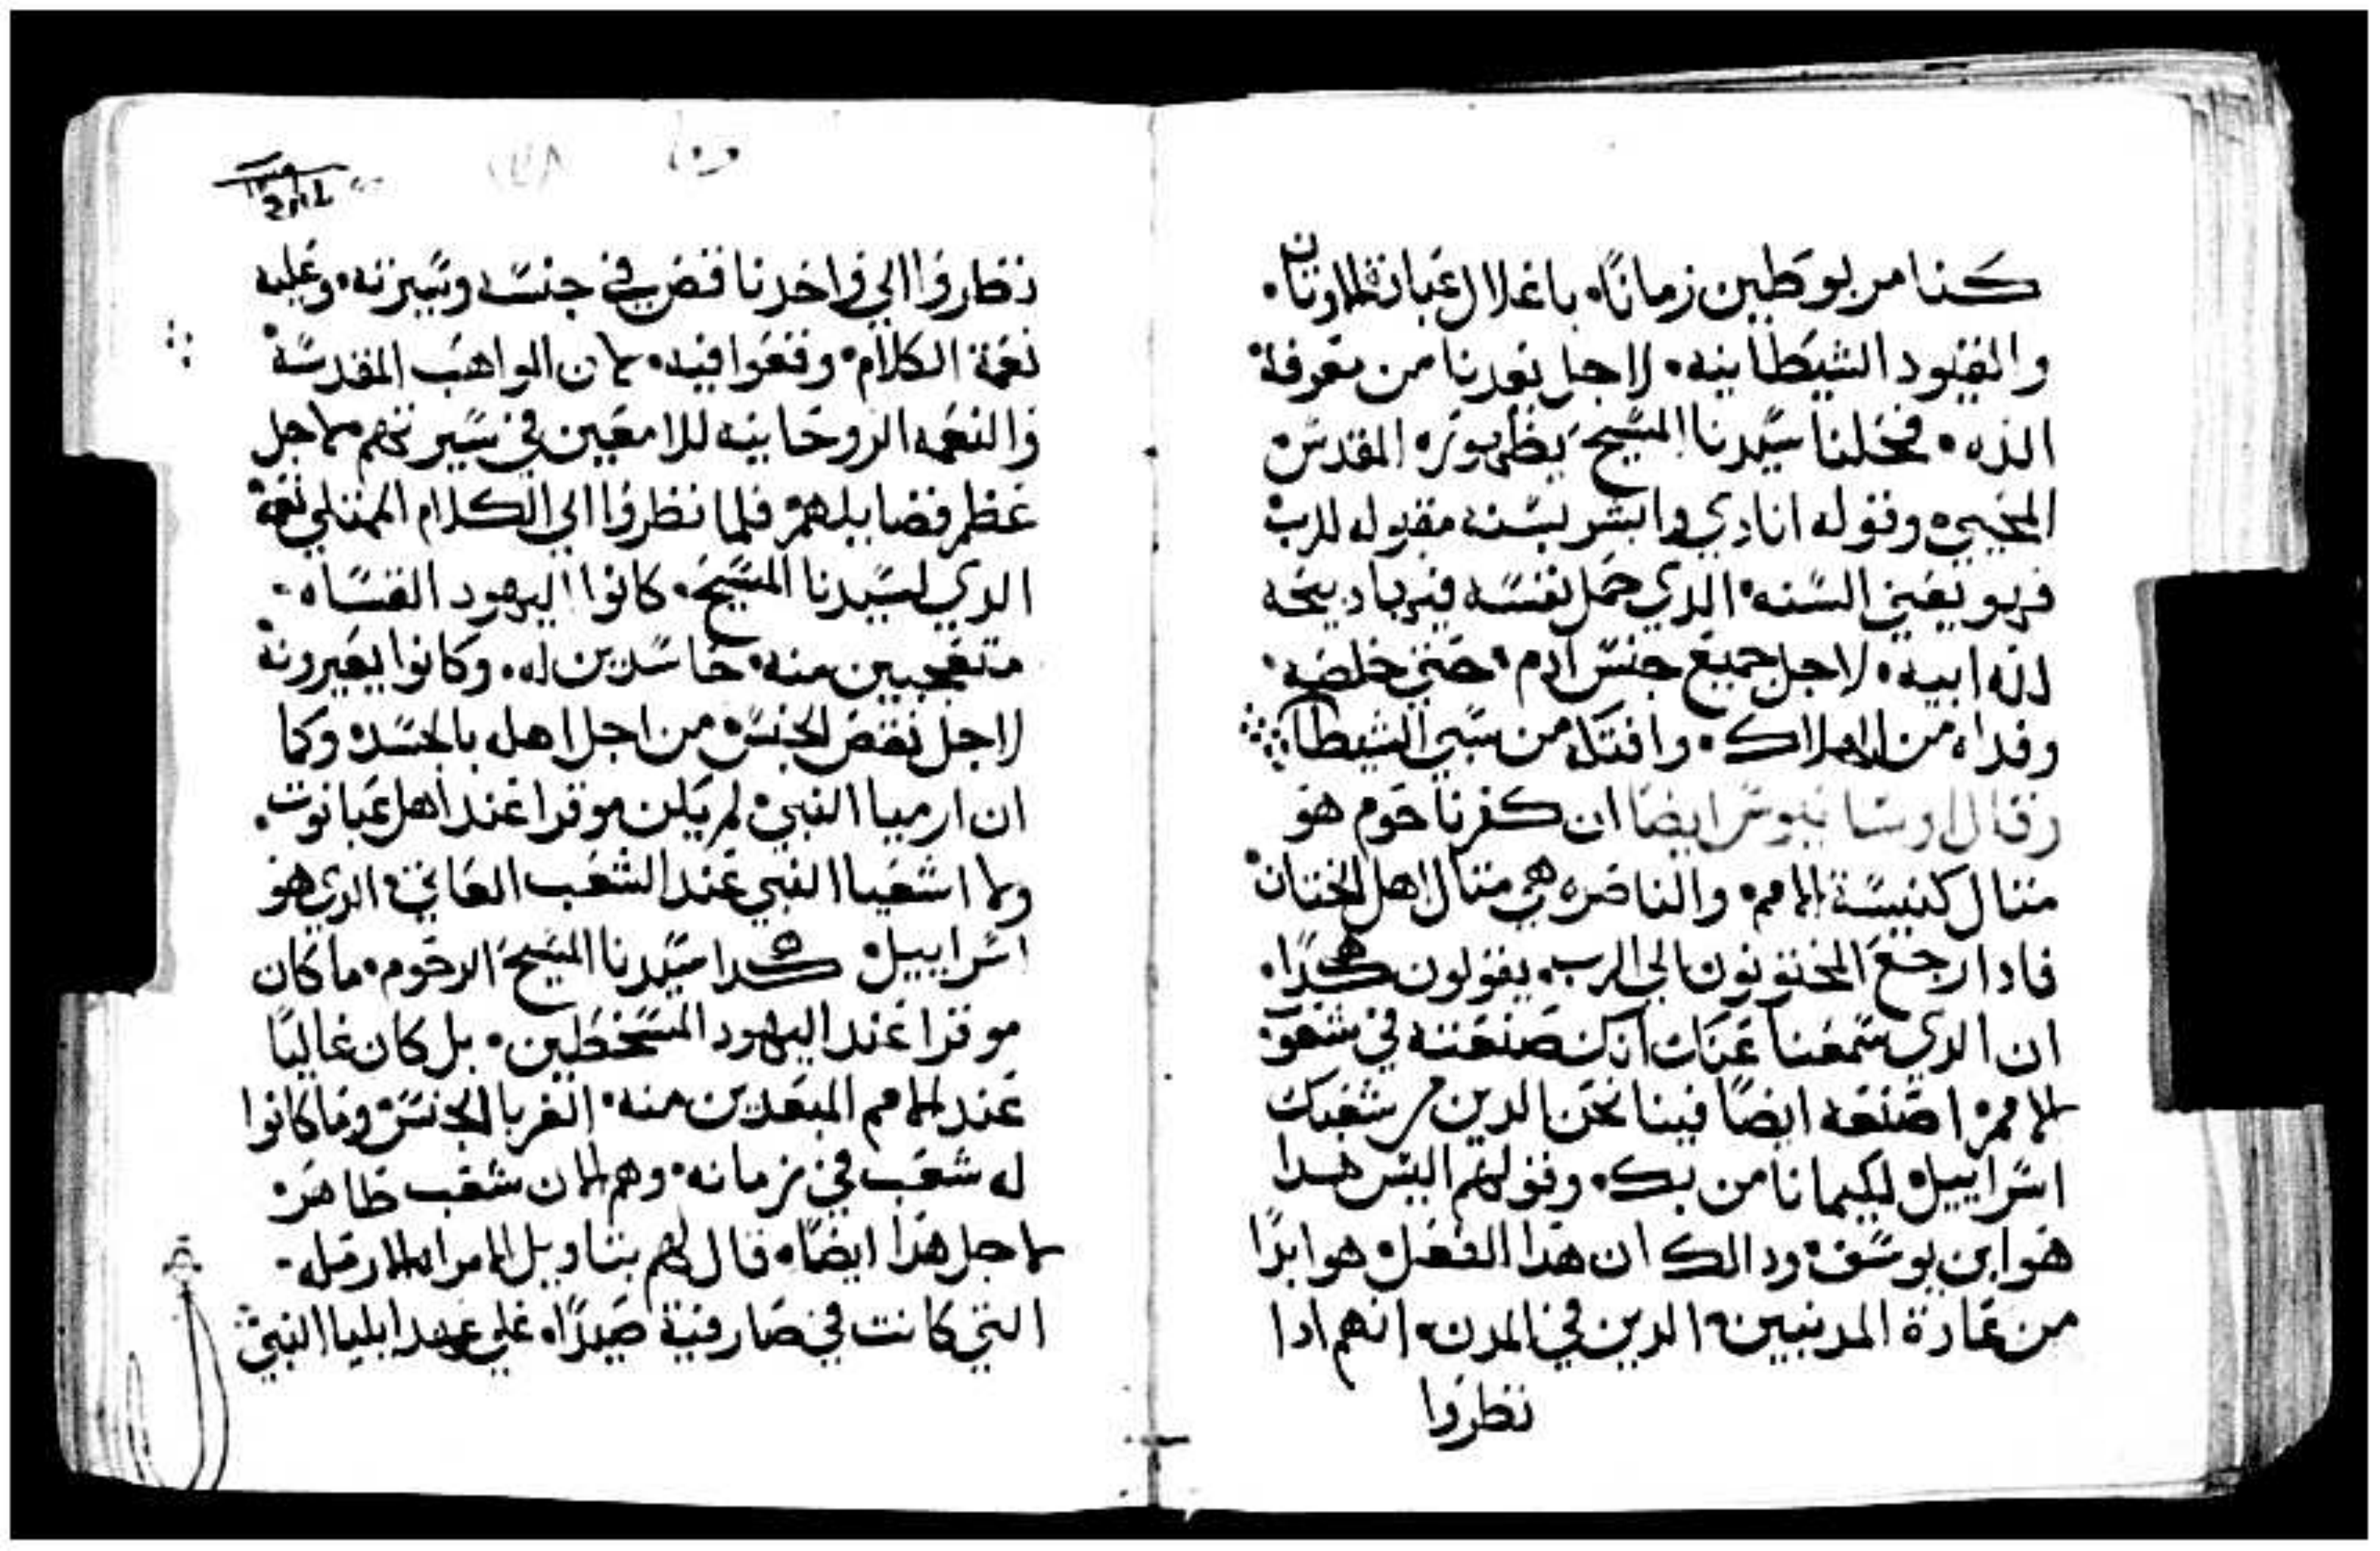 كنا مربوطين زمانًا. باغلال عبادة الاوتان.
والقيود الشيطانيه. لاجل بعدنا من معرفة
الله. فحلنا سيدنا المسيح بظهوره المقدس
المحيي. وقوله انادي وابشر بسنه مقبوله للرب
فهو يعني السنه الدي حمل نفسه فيها دبيحه
لله ابيه. لاجل جميع جنس ادم. حتي خلصه.
وفداه من الهلاك. وافتكه من سبي الشيطان
وقال اوسابيوس ايضا ان كفرناحوم هو
متال كنيسة الامم. والناصره هي متال اهل الختان
فادا رجع المختونون الي الرب. يقولون هكدا.
ان الدي سمعنا عنك انك صنعته في شعوب
الامم اصنعه ايضًا فينا نحن الدين من شعبك
اسراييل لكيما نامن بك. وقولهم اليس هدا
هو ابن يوسف ودالك ان هدا الفعل هو ابدًا
من عادة المدنيين الدين في المدن. انهم ادا
نظروا
نظروا الي واحد ناقص في جنسه وسيرته. وعليه
نعمة الكلام. وقعوا فيه. لان المواهب المقدسة
والنعمه الروحانيه للامعين في سيرتهم لاجل
عظم فضايلهم فلما نظروا الي الكلام الممتلي نعمه
الدي لسيدنا المسيح. كانوا اليهود القساه.
متعجبين منه. حاسدين له. وكانوا يعيرونه
لاجل نقص الجنس من اجل اهله بالجسد. وكما
ان ارميا النبي لم يكن موقرا عند اهل عبانوت.
ولا اشعيا النبي عند الشعب العاتي الدي هو
اسراييل هكدا سيدنا المسيح الرحوم. ما كان
موقرا عند اليهود المسخطين. بل كان غاليًا
عند الامم المبعدين منه. الغربا الجنس وما كانوا
له شعب في زمانه. وهم الان شعب طاهر
لاجل هدا ايضًا. قال لهم بتاويل الامراه الارمله.
التي كانت في صارفية صيدًا. علي عهد ايليا النبي